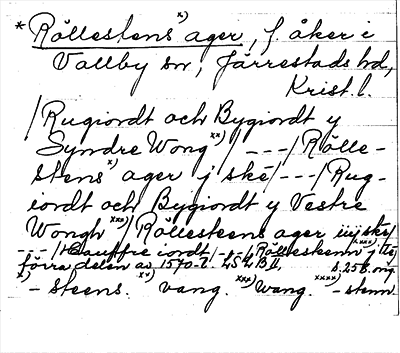 * Röllestens x) ager, f. åker i
Vallby sn, Järrestads hd,
Krist. l.
/Rugiordt och Bygiordt y
Syndre Wong xx)/ - - - /Rölle-
stens x) ager j ske/ - - - /Rug-
iordt och Bygiordt y Vestre
Wongh xxx)/ Röllesteens ager iij ske/
- - - /Hauffre iordt/ - - / Röllestenn xxxx) j
förra delen av 1570-t. LSLB II, s. 258. orig.
x) - steens. xx) vang. xxx) Wang. xxxx) - stenn